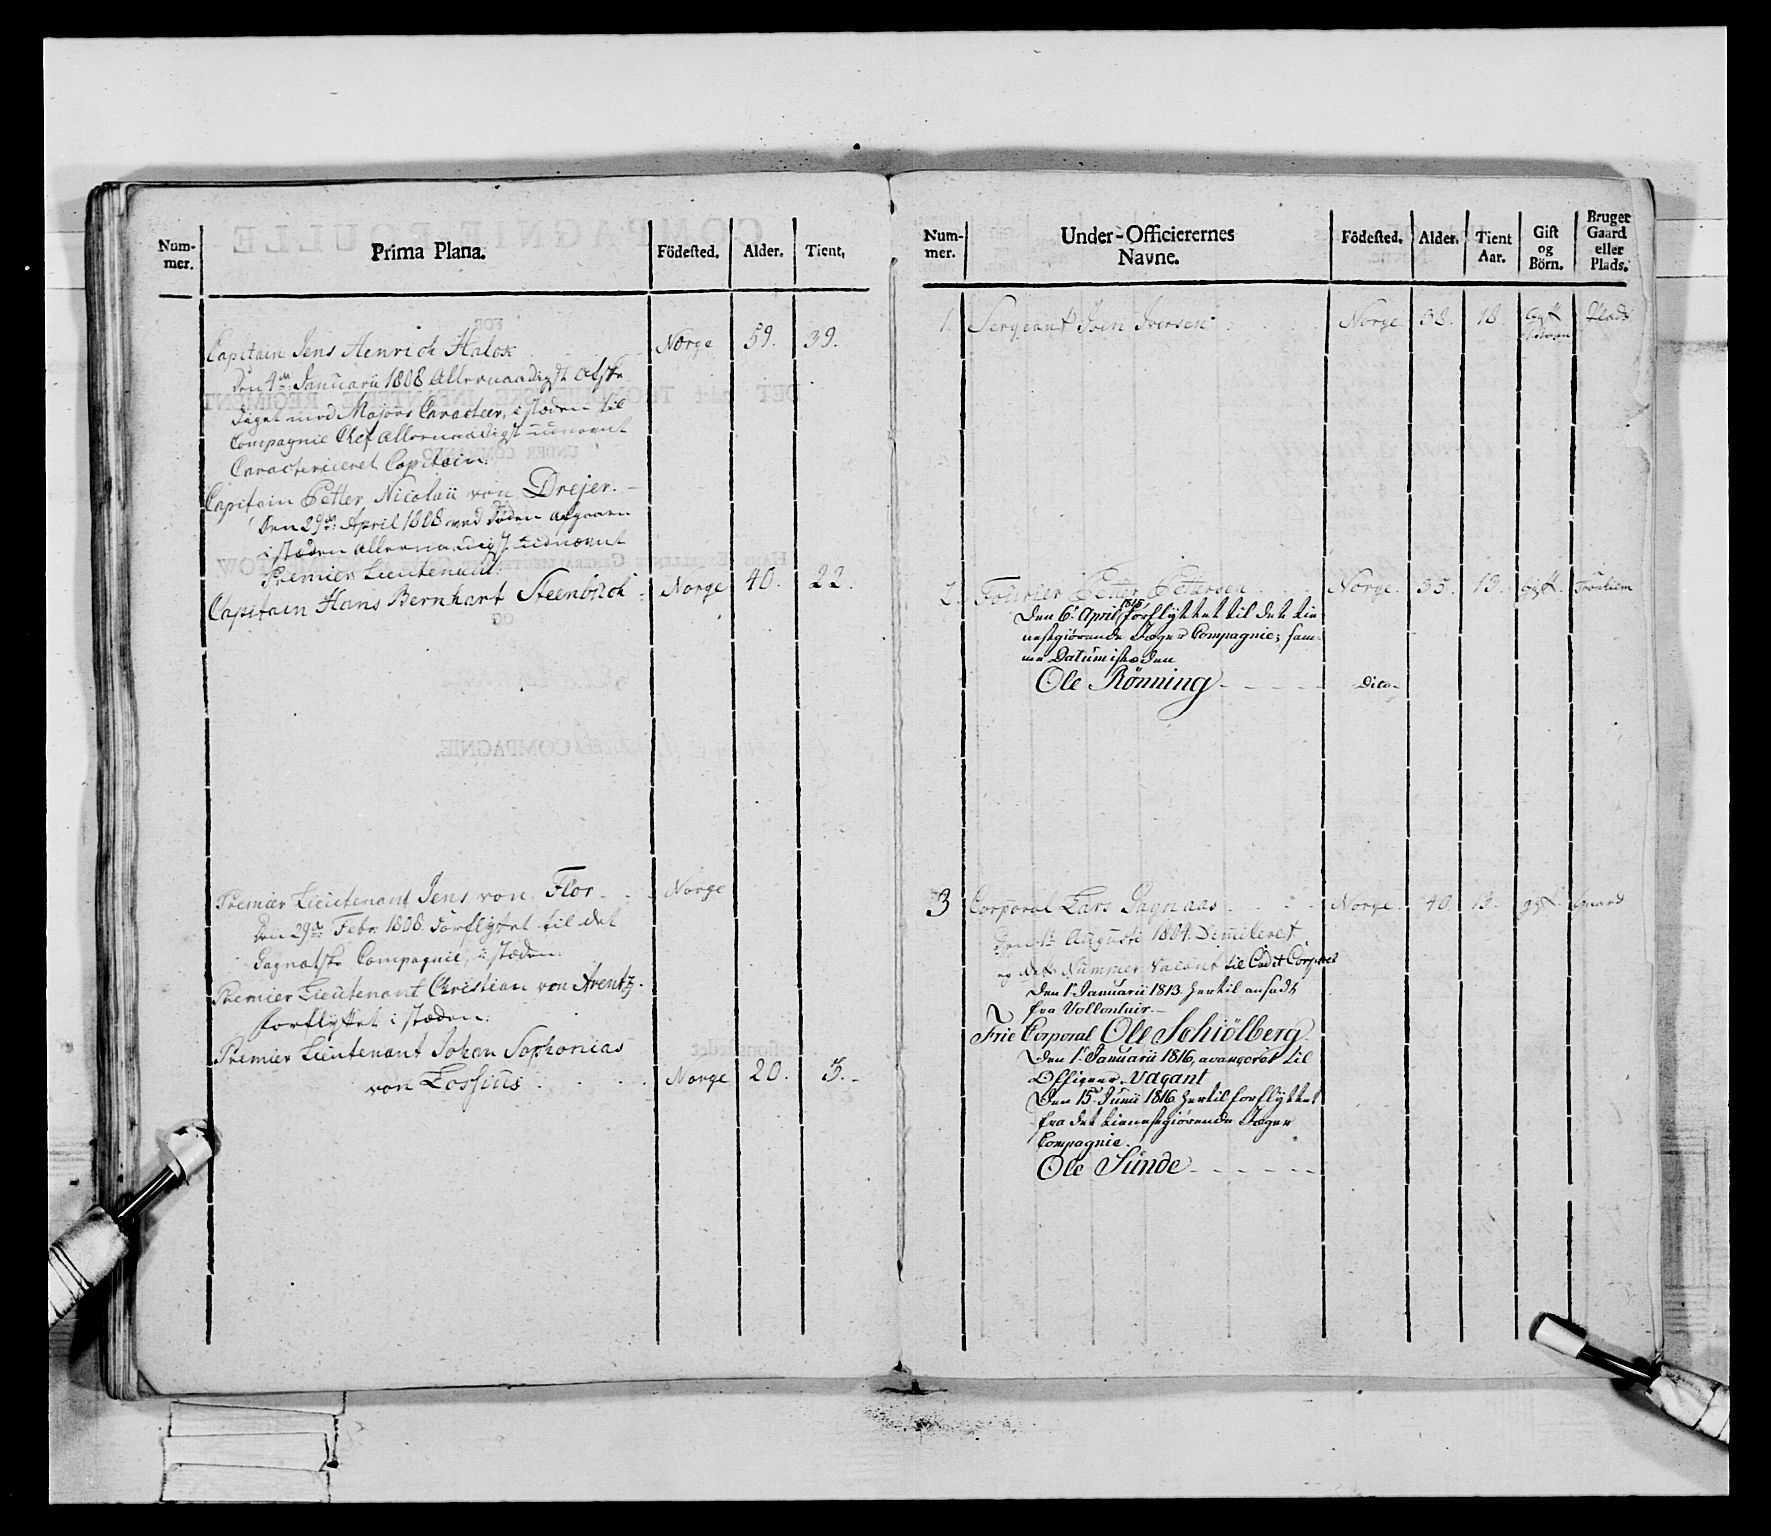 Num-
mer.
Prima Plana.
Födested.
Alder.
Tient,
Capitain Jens Henrich
Norge
59.
39.
Den 4de Januarii 1808 Allernaadigst afske
diget med Majors Caracteer, i stæden til
Compagnie Chef Allernaadigst udnævnt
Caracteriseret Capitain.
Capitain Petter Nicolaii von Drejer.
Den 29de April 1808 ved Döden afgaaen
i stæden allernaadigst udnævnt
Premier Lieutenant
Capitain Hans Bernhart Steenbuch
Norge
40.
22.
Premier Lieutenant Jens von Flor
Norge
Den 29de Febr. 1808. Forflyttet til det
Compagnie, i stæden
Premier Lieutenant Christian von Arentz.
forflyttet i stæden.
Premier Lieutenant Johan Sophonias
von Lossius
Norge
20.
3.
Num-
mer.
Under-Officierernes
Navne.
Födested.
Alder.
Tient
Aar.
Gift
og
Börn.
Bruger
Gaard
eller
Plads.
1.
Sergeant Iver Iversen
Norge.
38.
18.
Gift
Plads
2.
Fourier Petter Pettersen
Norge.
35.
13.
Gift.
Tronhiem
Den 6t April 1815 forflyttet til det tie
nestgiörende Jæger Compagnie; sam-
me Datum i stæden
Ole Rönning
Dito
3
Corporal Lars
Norge.
40.
13.
gift.
Gaard
Den 1te Augusti 1804. Dimiteret
og dette Nummer Vacant til Cadet Corpset
Den 1t Januarii 1813 hertil ansadt
fra Vollontair.
Frie Corporal Ole Schiölberg.
Den 1t Januarii 1816, avangeret til
Officeer. Vacant
Den 15t Junii 1816 hertil forflyttet
fra det tienestgiörende Jæger
Compagnie.
Ole Sunde